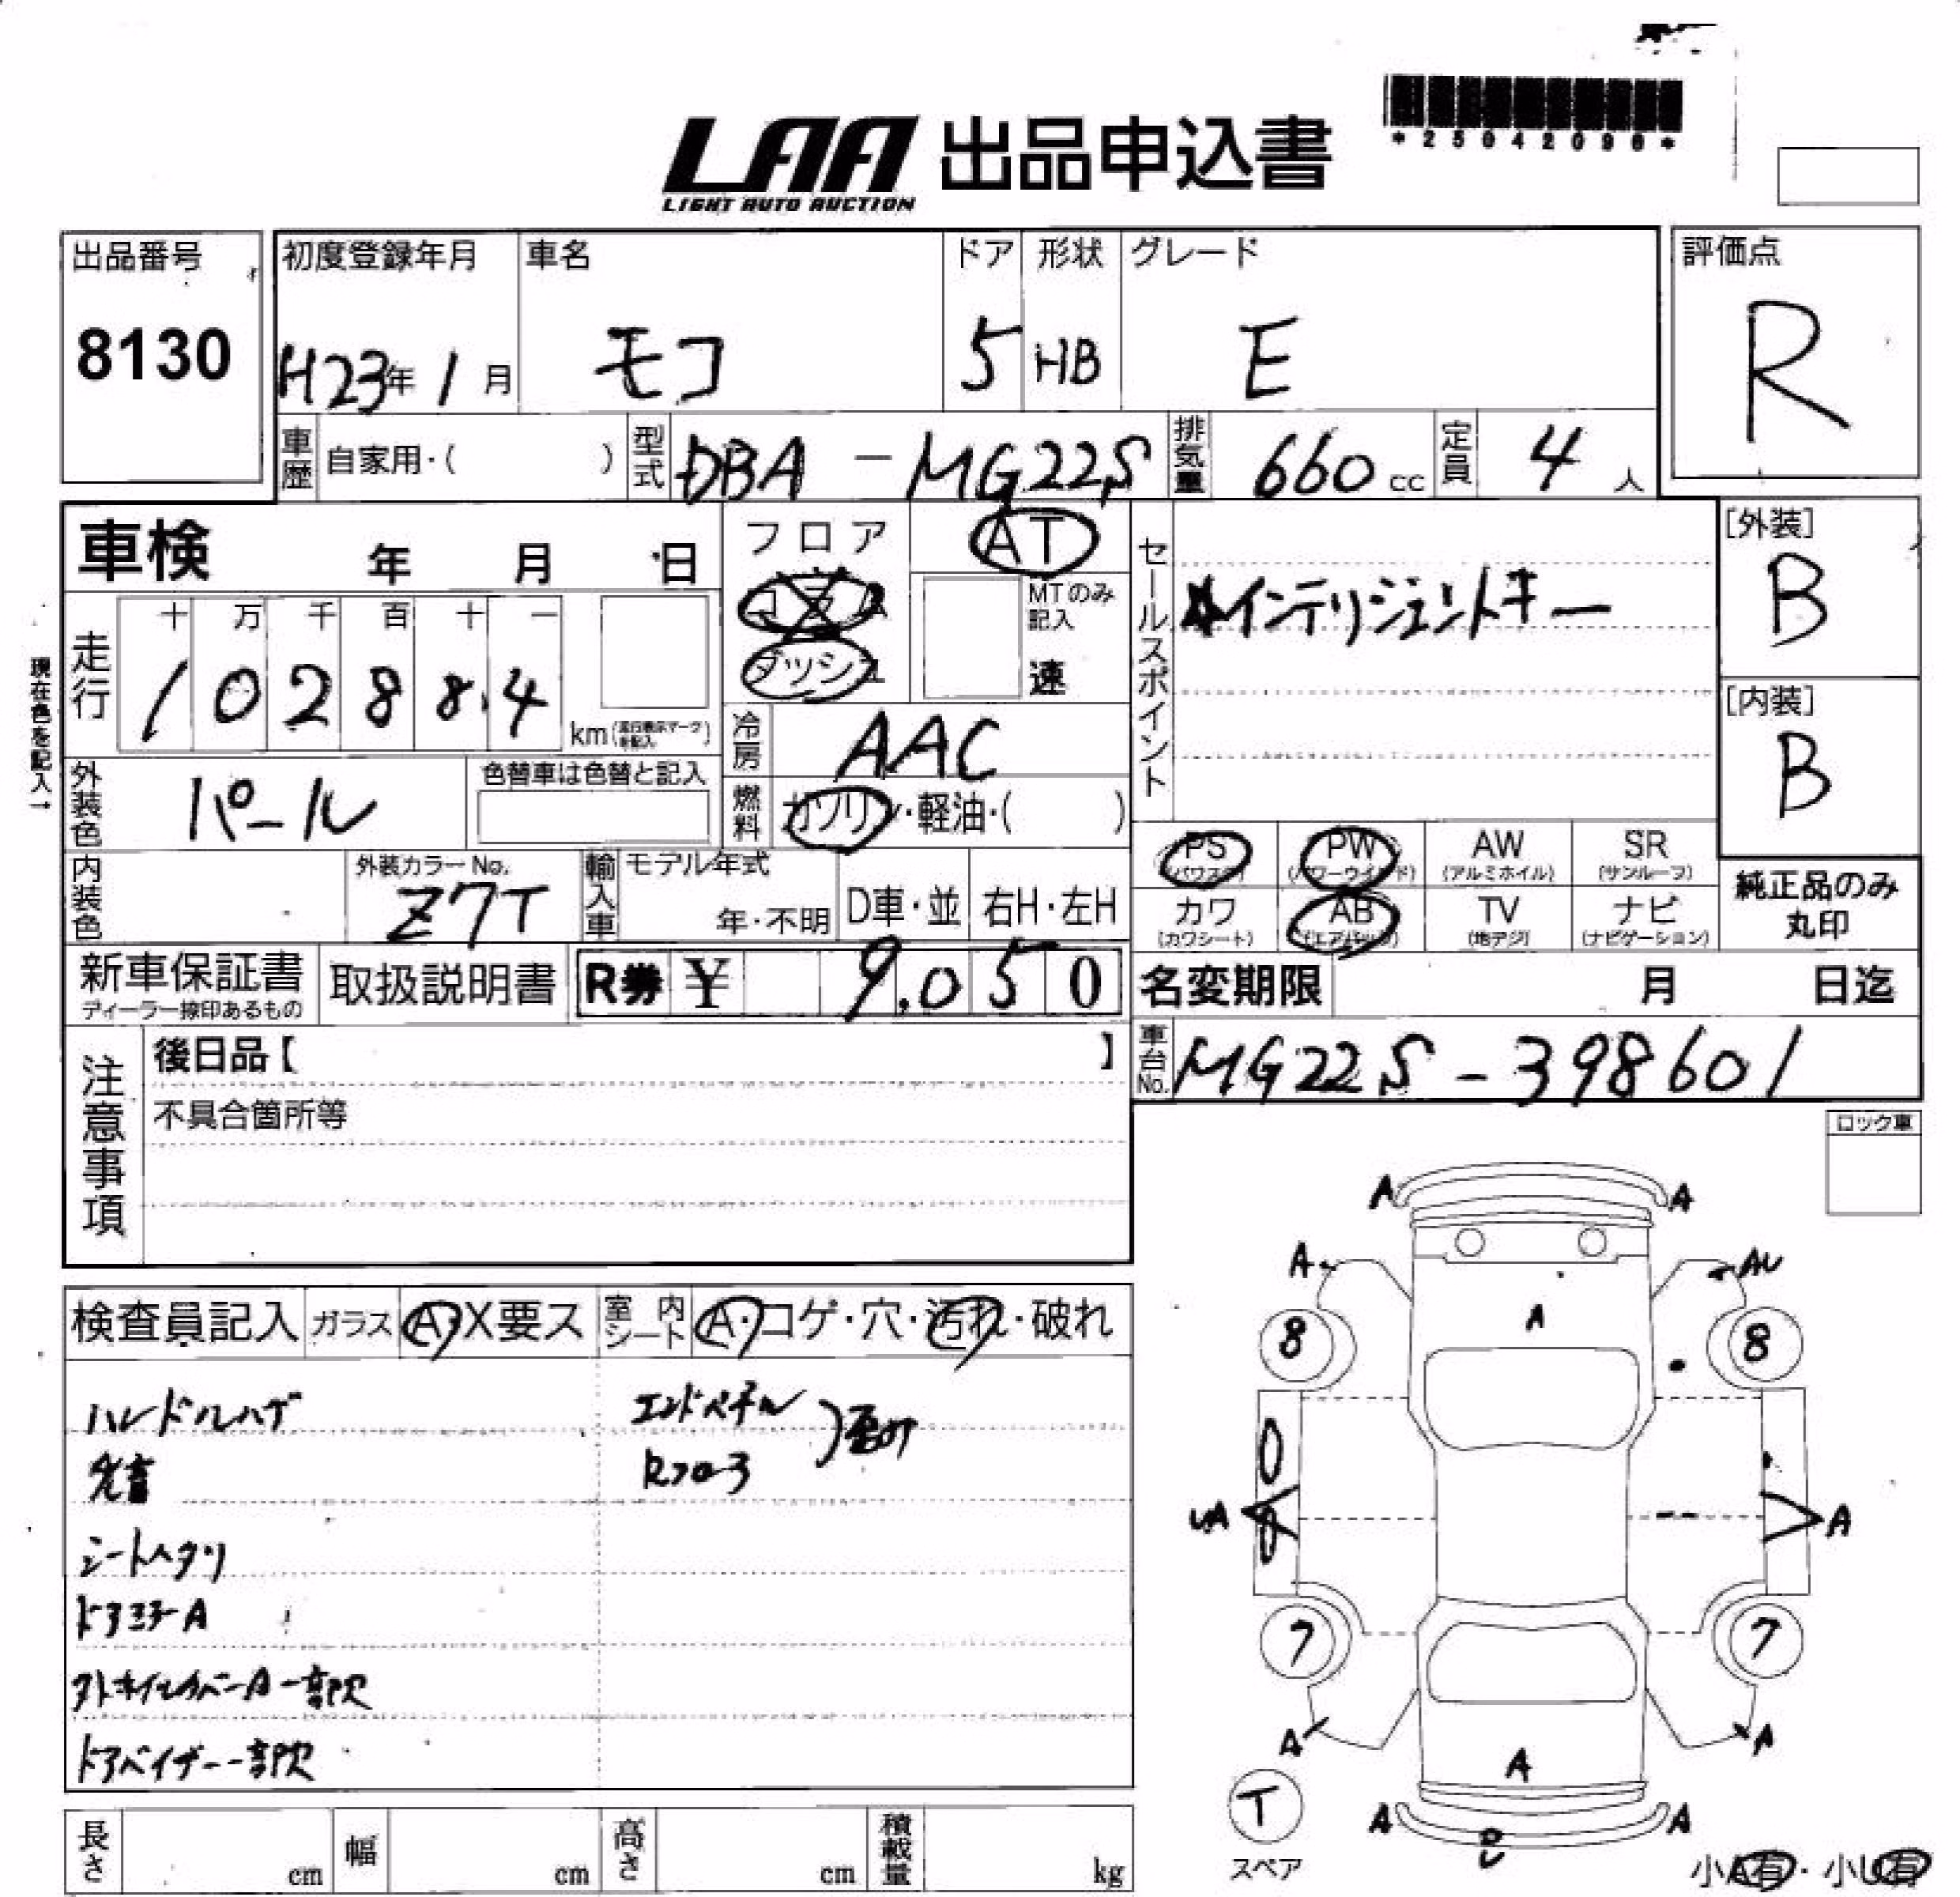 *25042090*
LAA 出品申込書
LIGHT AUTO AUCTION
出品番号 初度登録年月 車名 ドア 形状 グレード 評価点
8130 H23年 1月 モコ 5 HB E R
車歴 自家用・( ) 型式 DBA-MG22S 排気量 660 cc 定員 4 人
車検 年 月 日 フロア AT セールスポイント [外装]
コラム MTのみ記入 インテリジェントキー B
ダッシュ 速
現在色を記入→
走行 十 万 千 百 十 一
1 0 2 8 8 4 km(走行表示マークを記入) [内装]
冷房 AAC B
外装色 パール 色替車は色替と記入 燃料 ガソリン・軽油・( )
PS (パワステ) PW (パワーウインド) AW (アルミホイル) SR (サンルーフ)
内装色 外装カラーNo. Z7T 輸入車 モデル年式 年・不明 D車・並 右H・左H
カワ (カワシート) AB (エアバッグ) TV (地デジ) ナビ (ナビゲーション) 純正品のみ丸印
新車保証書 ディーラー捺印あるもの 取扱説明書 R券 ¥ 9,050 名変期限 月 日迄
注意事項 後日品【 】 車台No. MG22S-398601
不具合箇所等
ロック車
検査員記入 ガラス A・X要ス 室内シート A・コゲ・穴・汚れ・破れ
ハンドルハゲ エンドパネル
R フロア
シートヘタリ
ドアミラーA
ホイルカバーA 一部欠
ドアバイザー一部欠
A A
A AU
A
8 8
UA A
7 7
A A
A
T A A
スペア
小A有・小U有
長さ cm 幅 cm 高さ cm 積載量 kg